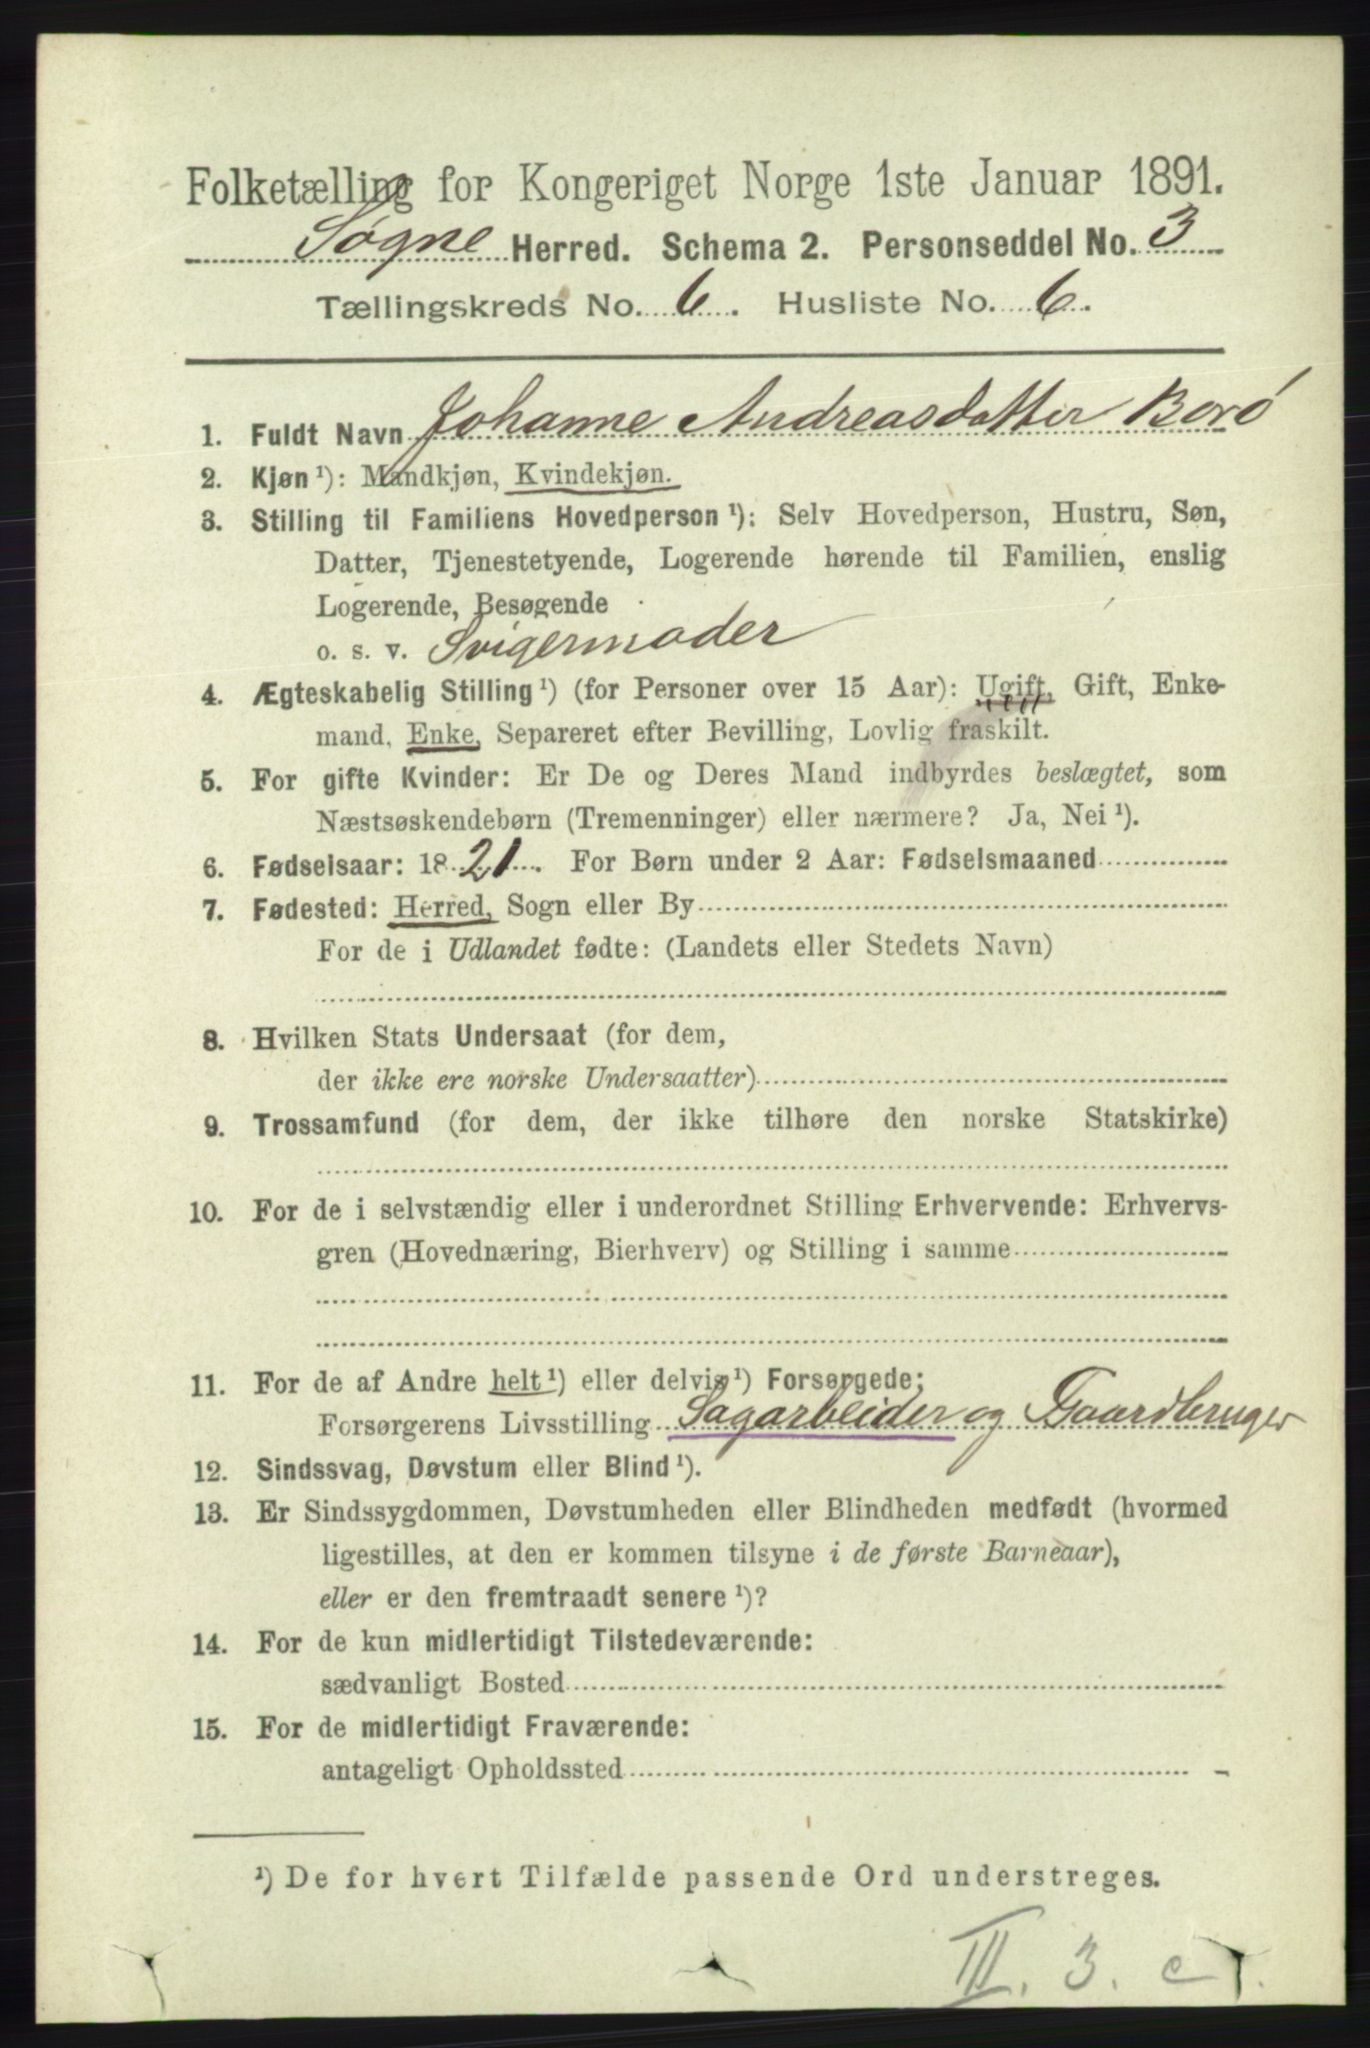 Folketælling for Kongeriget Norge 1ste Januar 1891.
Søgne Herred. Schema 2. Personseddel No. 3
Tællingskreds No. 6. Husliste No. 6.
1. Fuldt Navn Johanne Andreasdatter Borö
2. Kjøn ¹): Mandkjøn, Kvindekjøn.
3. Stilling til Familiens Hovedperson ¹): Selv Hovedperson, Hustru, Søn,
Datter, Tjenestetyende, Logerende hørende til Familien, enslig
Logerende, Besøgende
o. s. v. Svigermoder
4. Ægteskabelig Stilling ¹) (for Personer over 15 Aar): Ugift, Gift, Enke-
mand, Enke, Separeret efter Bevilling, Lovlig fraskilt.
5. For gifte Kvinder: Er De og Deres Mand indbyrdes beslægtet, som
Næstsøskendebørn (Tremenninger) eller nærmere? Ja, Nei ¹).
6. Fødselsaar: 1821. For Børn under 2 Aar: Fødselsmaaned
7. Fødested: Herred, Sogn eller By
For de i Udlandet fødte: (Landets eller Stedets Navn)
8. Hvilken Stats Undersaat (for dem,
der ikke ere norske Undersaatter)
9. Trossamfund (for dem, der ikke tilhøre den norske Statskirke)
10. For de i selvstændig eller i underordnet Stilling Erhvervende: Erhvervs-
gren (Hovednæring, Bierhverv) og Stilling i samme
11. For de af Andre helt ¹) eller delvis ¹) Forsørgede:
Forsørgerens Livsstilling Sagarbeider og Gaardbruger
12. Sindssvag, Døvstum eller Blind ¹).
13. Er Sindssygdommen, Døvstumheden eller Blindheden medfødt (hvormed
ligestilles, at den er kommen tilsyne i de første Barneaar),
eller er den fremtraadt senere ¹)?
14. For de kun midlertidigt Tilstedeværende:
sædvanligt Bosted
15. For de midlertidigt Fraværende:
antageligt Opholdssted
¹) De for hvert Tilfælde passende Ord understreges.
III. 3. c